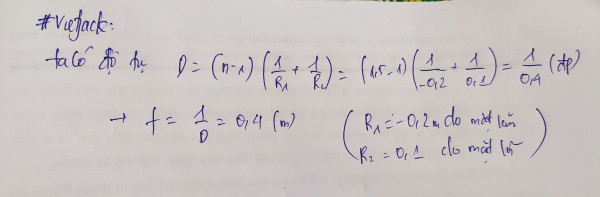 #VietJack:
ta có độ tụ D = (n-1) (1/R1 + 1/R2) = (1,5-1) (1/-0,2 + 1/0,1) = 1/0,4 (dp)
→ f = 1/D = 0,4 (m) (R1 = -0,2m do mặt lõm
R2 = 0,1 do mặt lồi)